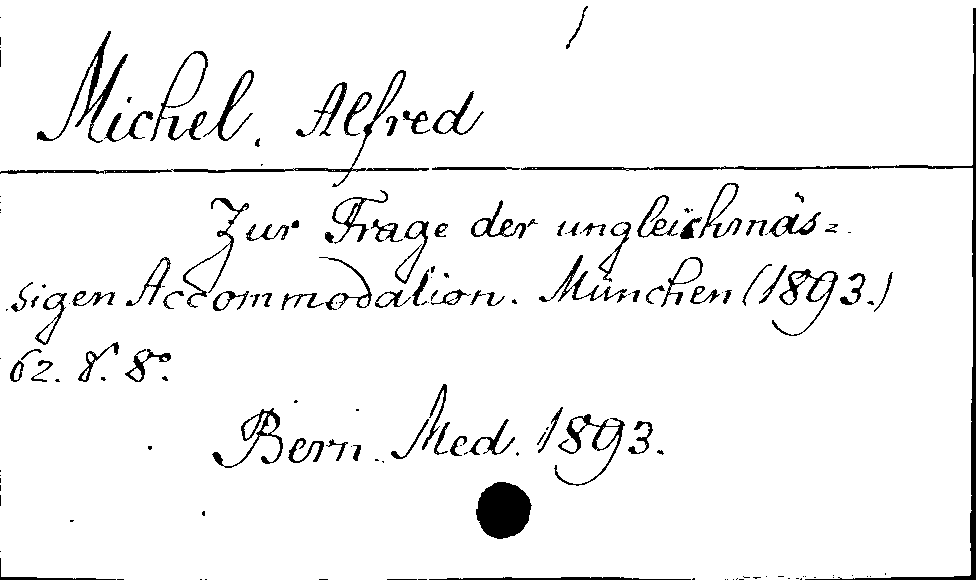 Michel, Alfred
Zur Frage der ungleichmäs=
sigen Accommodation. München (1893.)
62. S. 8°.
Bern. Med. 1893.